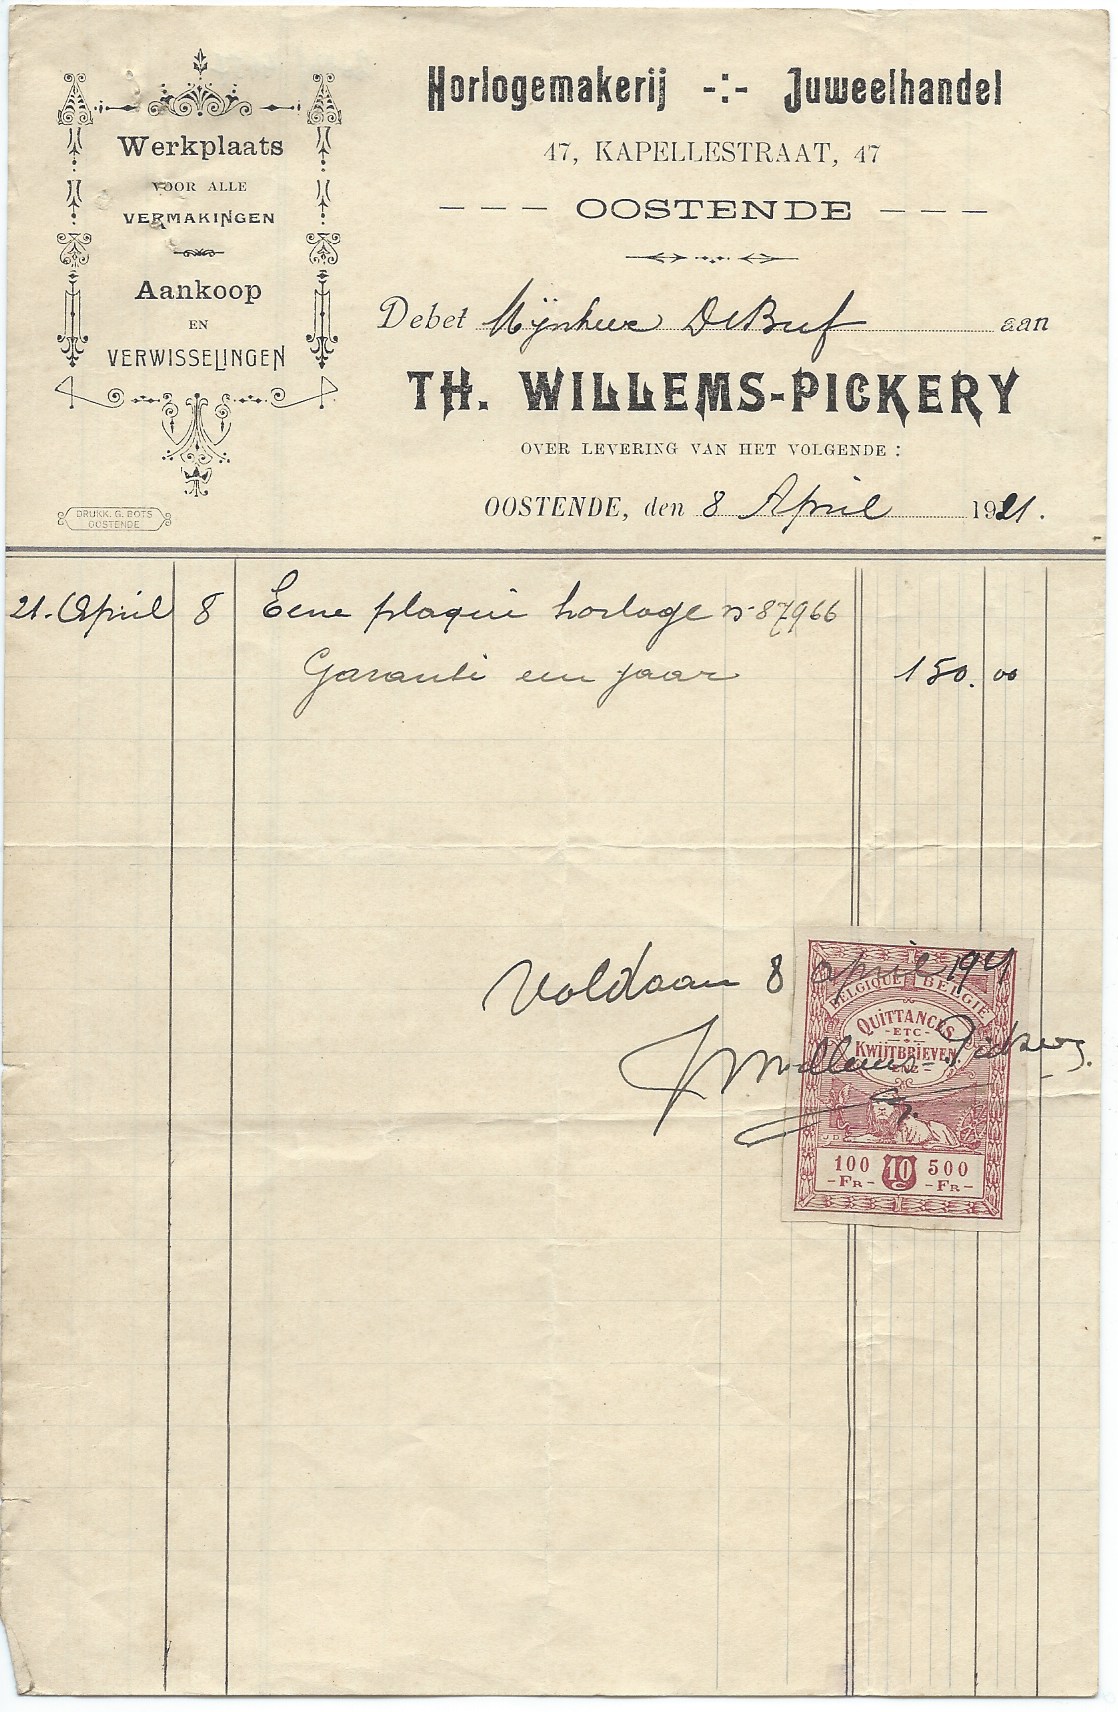 Horlogemakerij -:- Juweelhandel
47, KAPELLESTRAAT, 47
OOSTENDE
Werkplaats
VOOR ALLE
VERMAKINGEN
Aankoop
EN
VERWISSELINGEN
DRUKK. G. BOTS
OOSTENDE
Debet Mijnheer De Buf aan
TH. WILLEMS-PICKERY
OVER LEVERING VAN HET VOLGENDE :
OOSTENDE, den 8 April 1921.
21. April 8 Eene plaqui horloge n° 87966
Garantie een jaar 150.00
Voldaan 8 april 1921
Willems-Pickery
BELGIQUE BELGIË
QUITTANCES
-ETC-
KWIJTBRIEVEN
ENZ
J D
100 10 500
-FR- C -FR-